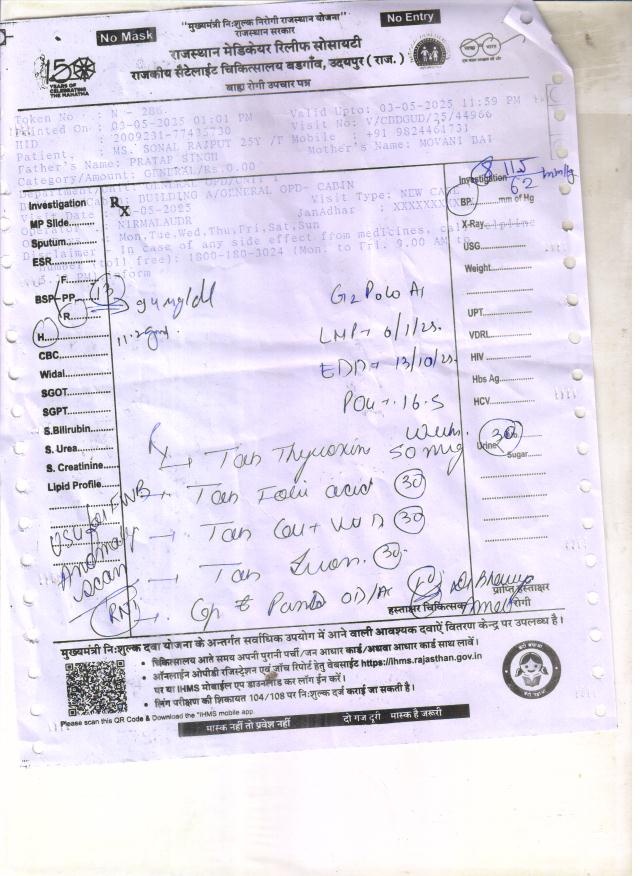 "मुख्यमंत्री निःशुल्क निरोगी राजस्थान योजना"
राजस्थान सरकार
No Mask
No Entry
राजस्थान मेडिकेयर रिलीफ सोसायटी
राजकीय सैटेलाईट चिकित्सालय बडगाँव, उदयपुर ( राज. )
बाह्य रोगी उपचार पत्र
150
YEARS OF
CELEBRATING
THE MAHATMA
Token No : N - 286
Valid Upto: 03-05-2025 11:59 PM
Printed On : 03-05-2025 01:01 PM
Visit No: V/CDDGUD/25/44966
HID : 2009231-77435730
Mobile : +91 9824461731
Patient. : MS. SONAL RAJPUT 25Y /F
Mother's Name: MOVANI BAI
Father's Name: PRATAP SINGH
Category/Amount: GENERAL/Rs.0.00
GENERAL OPD/
BUILDING A/GENERAL OPD- CABIN
Visit Type: NEW
Visit Date : -05-2025
JanAdhar : XXXXXXXX
NIRMALAUDR
Mon,Tue,Wed,Thu,Fri,Sat,Sun
In case of any side effect from medicines, call helpline
number (toll free): 1800-180-3024 (Mon. to Fri. 9.00 AM to
5. PM)
Investigation
Rx
MP Slide
Sputum
ESR
F
BSP-PP 94 mg/dl
R
H 11.2 gm
CBC
Widal
SGOT
SGPT
S.Bilirubin
S. Urea
S. Creatinine
Lipid Profile
USG for FWB
Anomaly
scan
Investigation
115
62 mmHg
BP mm of Hg
X-Ray
USG
Weight
UPT
VDRL
HIV
Hbs Ag
HCV
Urine
Sugar
G2 P0L0 A1
LMP - 6/1/25.
EDD - 13/10/25.
POG - 16.5
week
Rx
→ Tab Thyroxin 50 mcg 30
→ Tab Folic acid 30
→ Tab Cal + Vit D 30
→ Tab Iron 30
Cap Panto OD/AC
हस्ताक्षर चिकित्सक
प्राप्ति हस्ताक्षर
रोगी
मुख्यमंत्री निःशुल्क दवा योजना के अन्तर्गत सर्वाधिक उपयोग में आने वाली आवश्यक दवाऐं वितरण केन्द्र पर उपलब्ध है।
• चिकित्सालय आते समय अपनी पुरानी पर्ची / जन आधार कार्ड/अथवा आधार कार्ड साथ लावें।
• ऑनलाईन ओपीडी रजिस्ट्रेशन एवं जाँच रिपोर्ट हेतु वेबसाईट https://ihms.rajasthan.gov.in
पर या IHMS मोबाईल एप डाउनलोड कर लॉग ईन करें।
• लिंग परीक्षण की शिकायत 104/108 पर निःशुल्क दर्ज कराई जा सकती है।
Please scan this QR Code & Download the "IHMS mobile app.
मास्क नहीं तो प्रवेश नहीं
दो गज दूरी मास्क है जरूरी